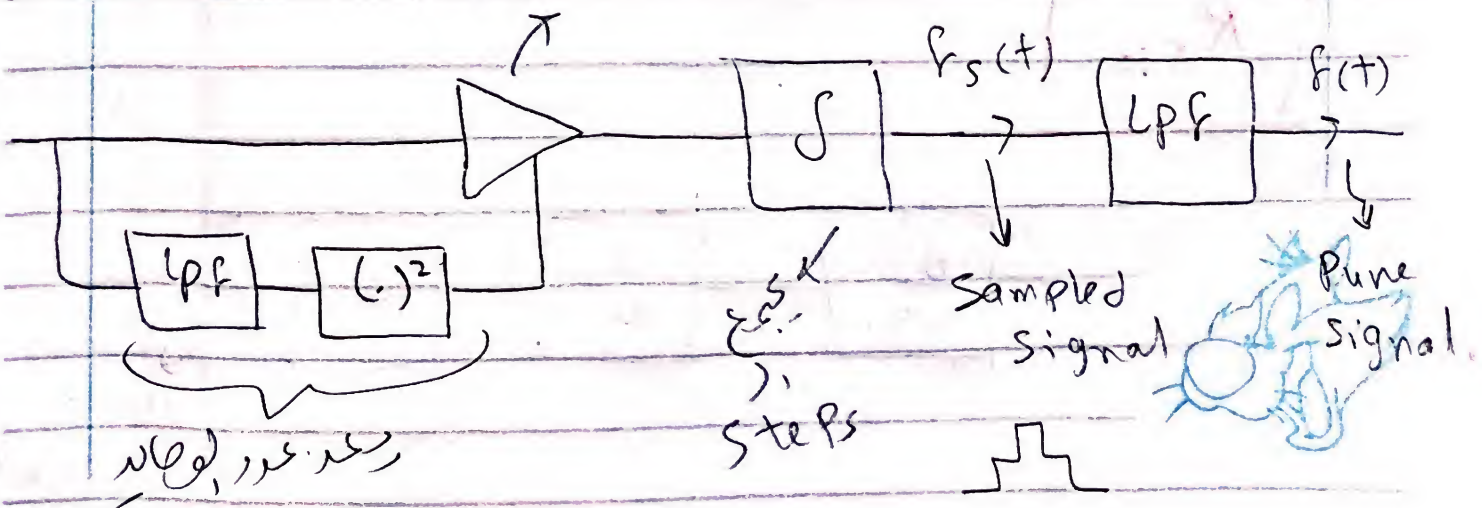 fs(t) f(t)
Lpf ∫ Lpf
(.)²
Sampled
Signal
Pure
Signal
يجمع
ال
Steps
عدد